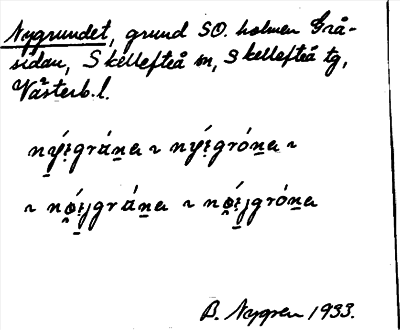 Nygrundet, grund SO. holmen Grå-
sidan, Skellefteå sn, Skellefteå tg,
Västerb. l.
nýi̯gráṉa ~ nýi̯gróṉa ~
~ nǿ̯i̯jgráṉa ~ nǿ̯i̯jgróṉa
B. Nygren 1933.